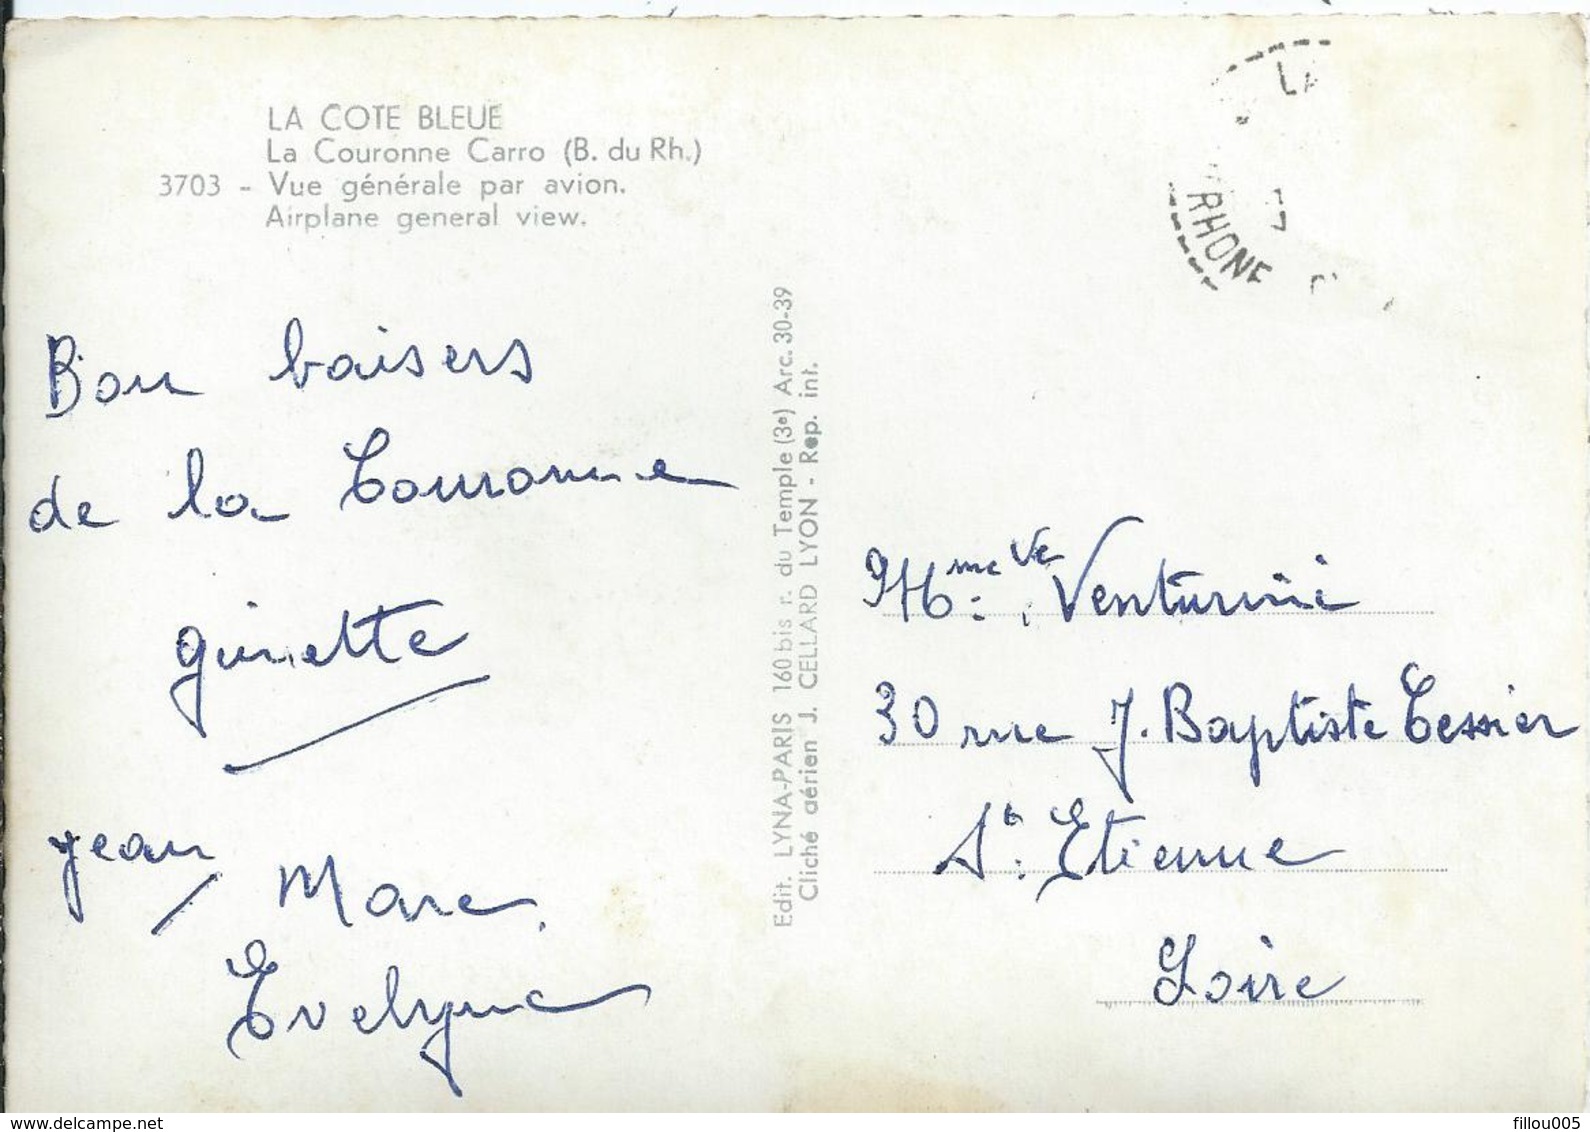 LA COTE BLEUE
La Couronne Carro (B. du Rh.)
3703 - Vue générale par avion.
Airplane general view.
Bon baisers
de la Couronne
ginette
jean Marc
Evelyne
Edit. LYNA-PARIS 160 bis r. du Temple (3e) Arc. 30-39
Cliché aérien J. CELLARD LYON - Rep. int.
LA
RHONE
Mme Ve Venturini
30 rue J. Baptiste Tessier
St. Etienne
Loire
fillou005